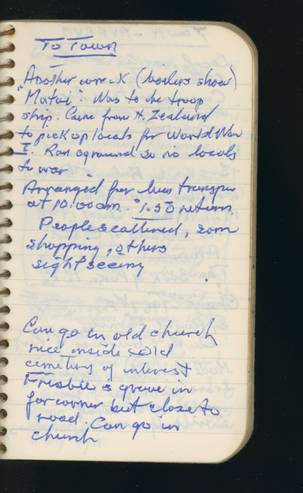 To Town
"Another wreck (boilers show)
"Matai": Was to be troop
ship. Came from N. Zealand
to pick up locals for World War
I. Ran aground so no locals
to war.
Arranged for bus transpor
at 10.00am. 1.30 return.
People scattered, som
shopping, others
sight seeing
Can go in old church
nice inside & old
cemetery of interest
Frisbie's grave in
far corner but close to
road. Can go in
church